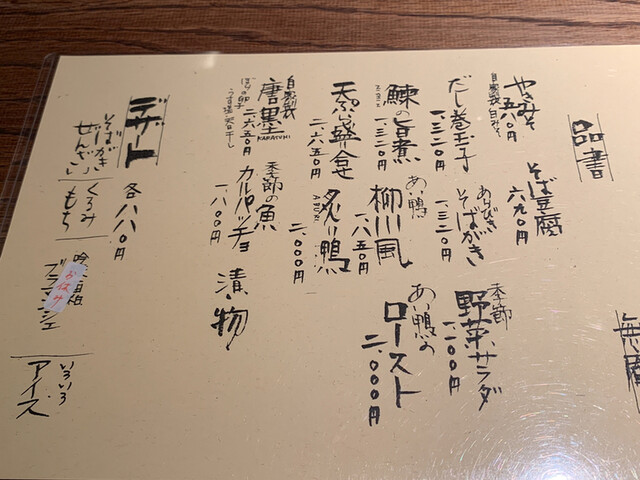 品書
やきみそ
五八〇円
自家製白みそ
そば豆腐
六九〇円
だし巻玉子
一、三二〇円
あらびき
そばがき
一、三二〇円
季節
野菜サラダ
一、一〇〇円
鰊の旨煮
一、三二〇円
あい鴨
柳川風
一、八五〇円
あい鴨の
ロースト
二、〇〇〇円
天ぷら盛合せ
二、六五〇円
炙り鴨
ABURI
二、〇〇〇円
自家製
唐墨
KARASUMI
二、六五〇円
ぼらの卵子
うす塩天日干し
季節の魚
カルパッチョ
一、八〇〇円
漬物
デザート
各八八〇円
そばがき
ぜんざい
くるみ
もち
お休み
ブラマンジェ
いろいろ
アイス